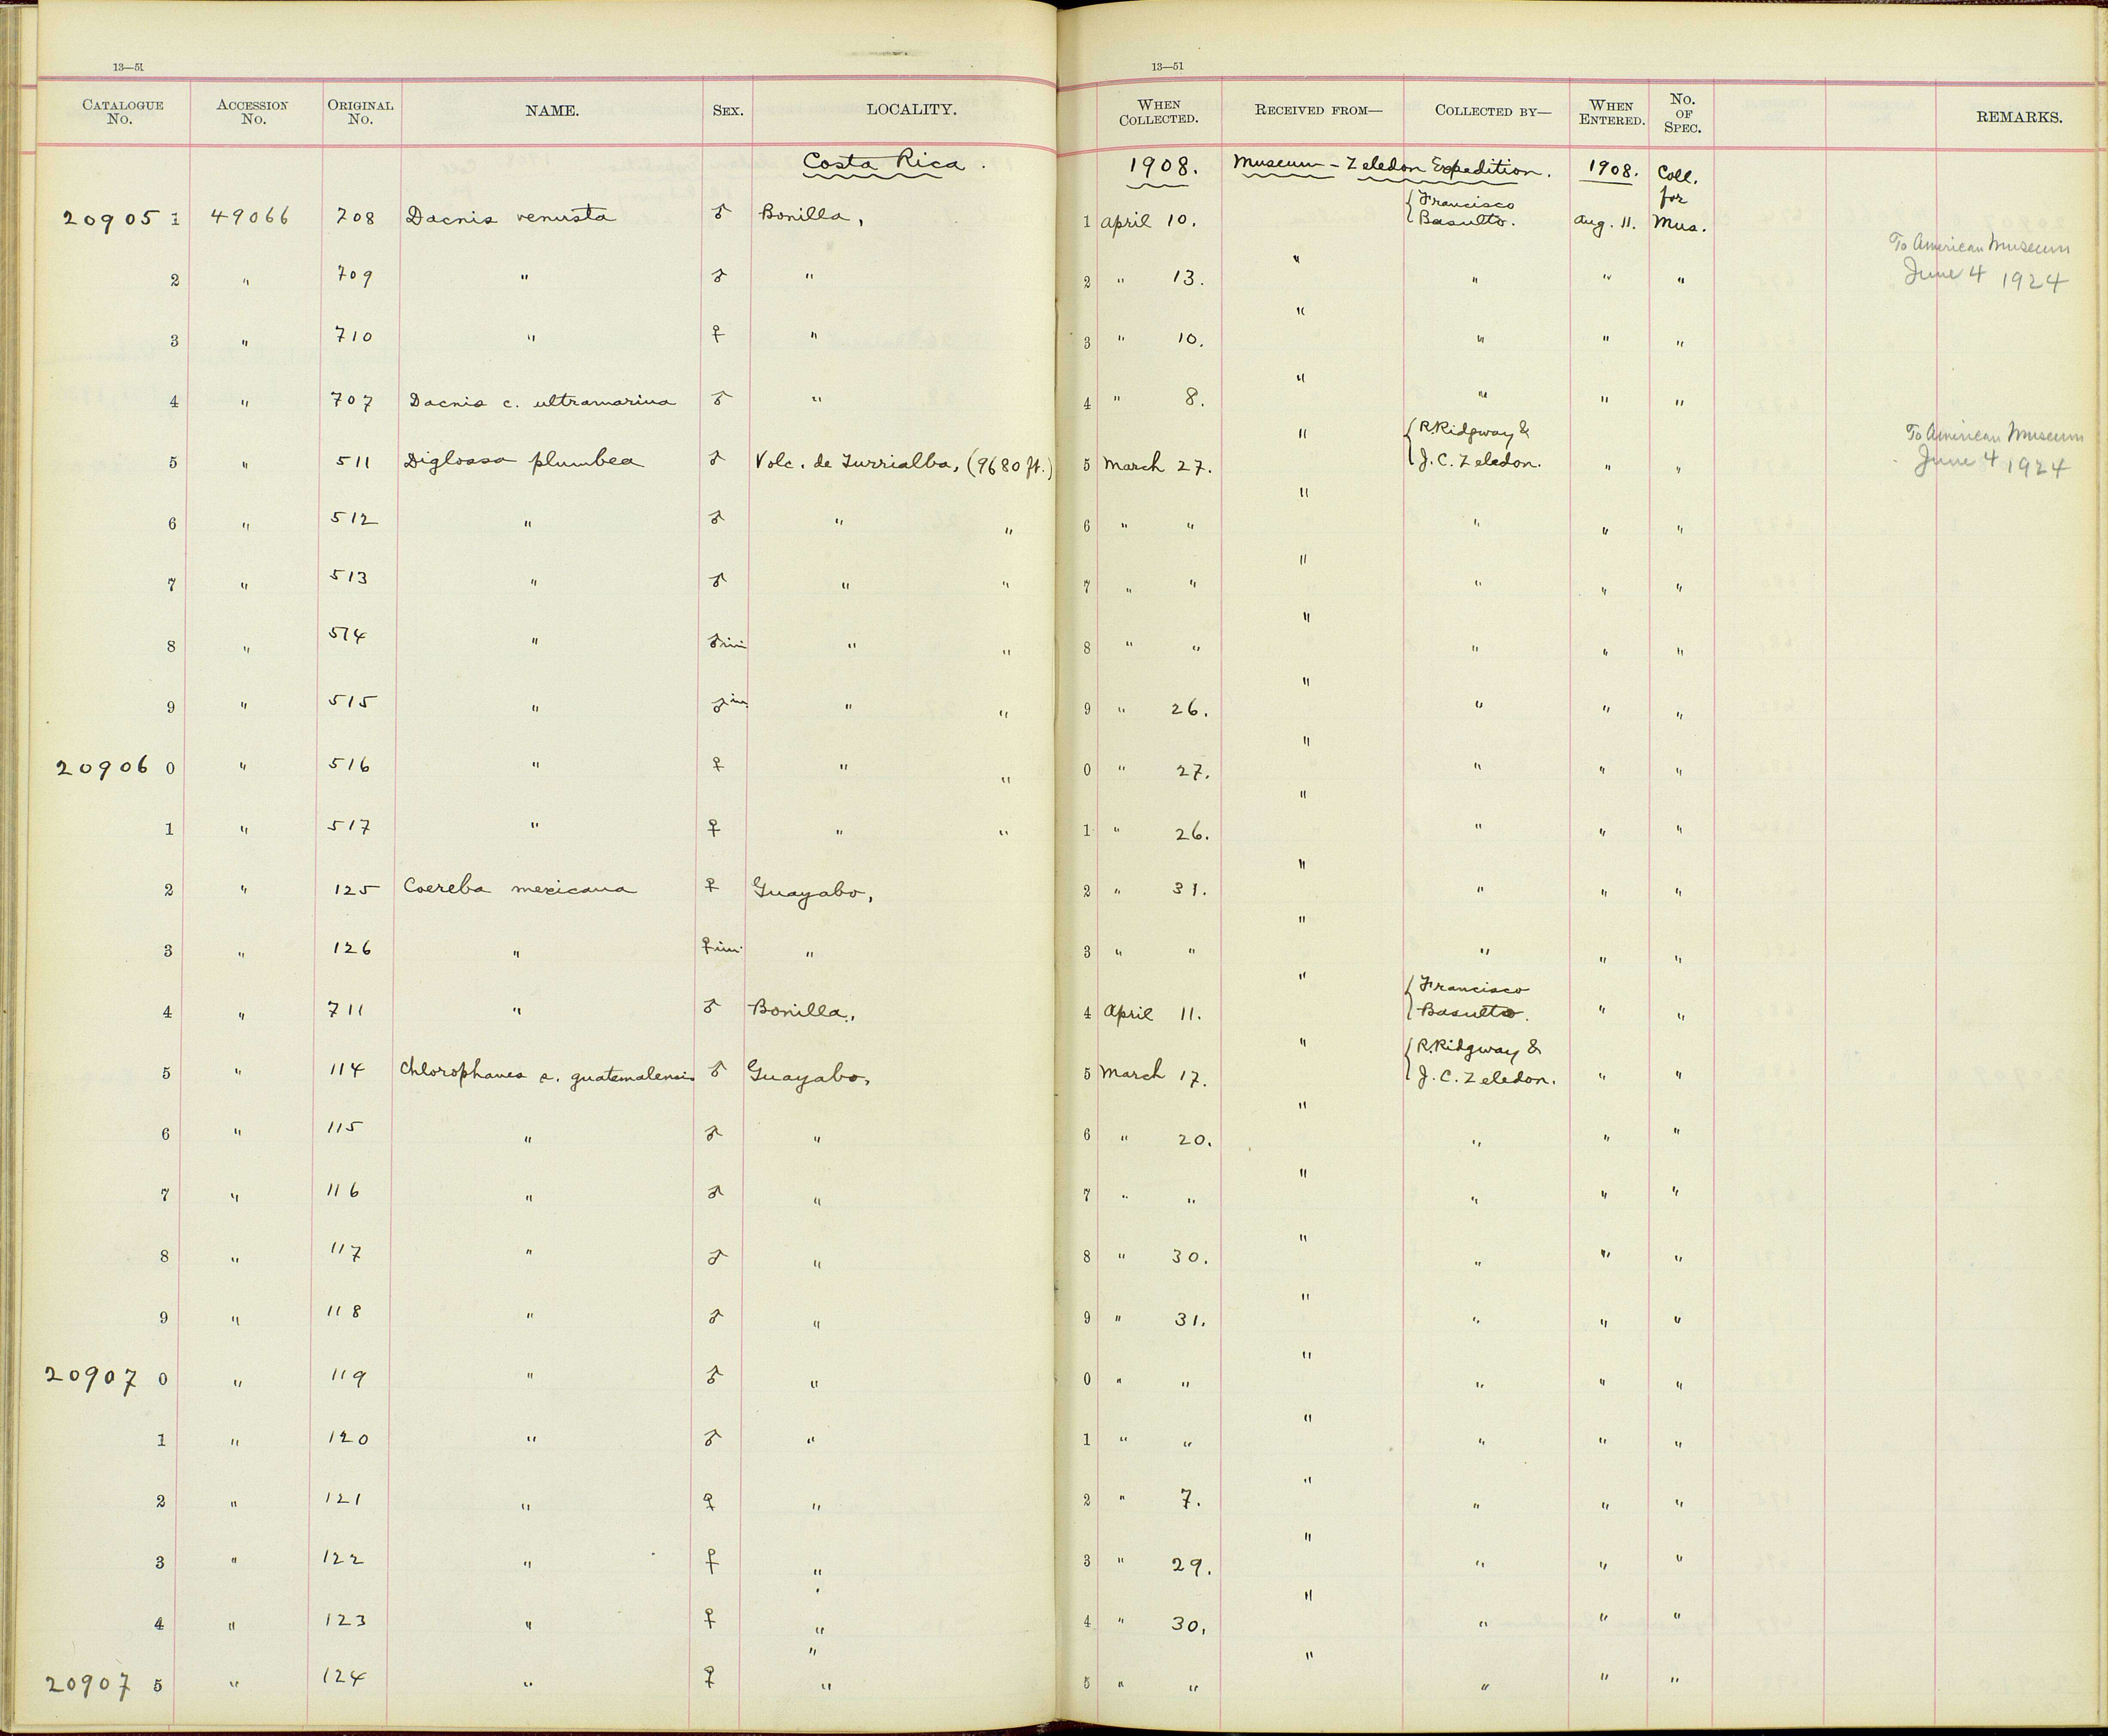 13—51
13—51
CATALOGUE No. ACCESSION No. ORIGINAL No. NAME. SEX. LOCALITY. WHEN COLLECTED. RECEIVED FROM— COLLECTED BY— WHEN ENTERED. No. OF SPEC. REMARKS.
Costa Rica. 1908. Museum - Zeledon Expedition. 1908. Coll. for Mus.
20905 1 49066 708 Dacnis venusta ♂ Bonilla, 1 April 10. { Francisco Basulto. Aug. 11.
2 " 709 " ♂ " 2 " 13. " " " " To American Museum June 4 1924
3 " 710 " ♀ " 3 " 10. " " " "
4 " 707 Dacnis c. ultramarina ♂ " 4 " 8. " " " "
5 " 511 Diglossa plumbea ♂ Volc. de Turrialba, (9680 ft.) 5 March 27. " { R. Ridgway & J. C. Zeledon. " " To American Museum June 4 1924
6 " 512 " ♂ " " 6 " " " " " "
7 " 513 " ♂ " " 7 " " " " " "
8 " 514 " ♂ im " " 8 " " " " " "
9 " 515 " ♂ im. " " 9 " 26. " " " "
20906 0 " 516 " ♀ " " 0 " 27. " " " "
1 " 517 " ♀ " " 1 " 26. " " " "
2 " 125 Coereba mexicana ♀ Guayabo, 2 " 31. " " " "
3 " 126 " ♀ im. " 3 " " " " " "
4 " 711 " ♂ Bonilla, 4 April 11. " { Francisco Basulto. " "
5 " 114 Chlorophanes s. guatemalensis ♂ Guayabo, 5 March 17. " { R. Ridgway & J. C. Zeledon. " "
6 " 115 " ♂ " 6 " 20. " " " "
7 " 116 " ♂ " 7 " " " " " "
8 " 117 " ♂ " 8 " 30. " " " "
9 " 118 " ♂ " 9 " 31. " " " "
20907 0 " 119 " ♂ " 0 " " " " " "
1 " 120 " ♂ " 1 " " " " " "
2 " 121 " ♀ " 2 " 7. " " " "
3 " 122 " ♀ " 3 " 29. " " " "
4 " 123 " ♀ " 4 " 30. " " " "
20907 5 " 124 " ♀ " " 5 " " " " " "